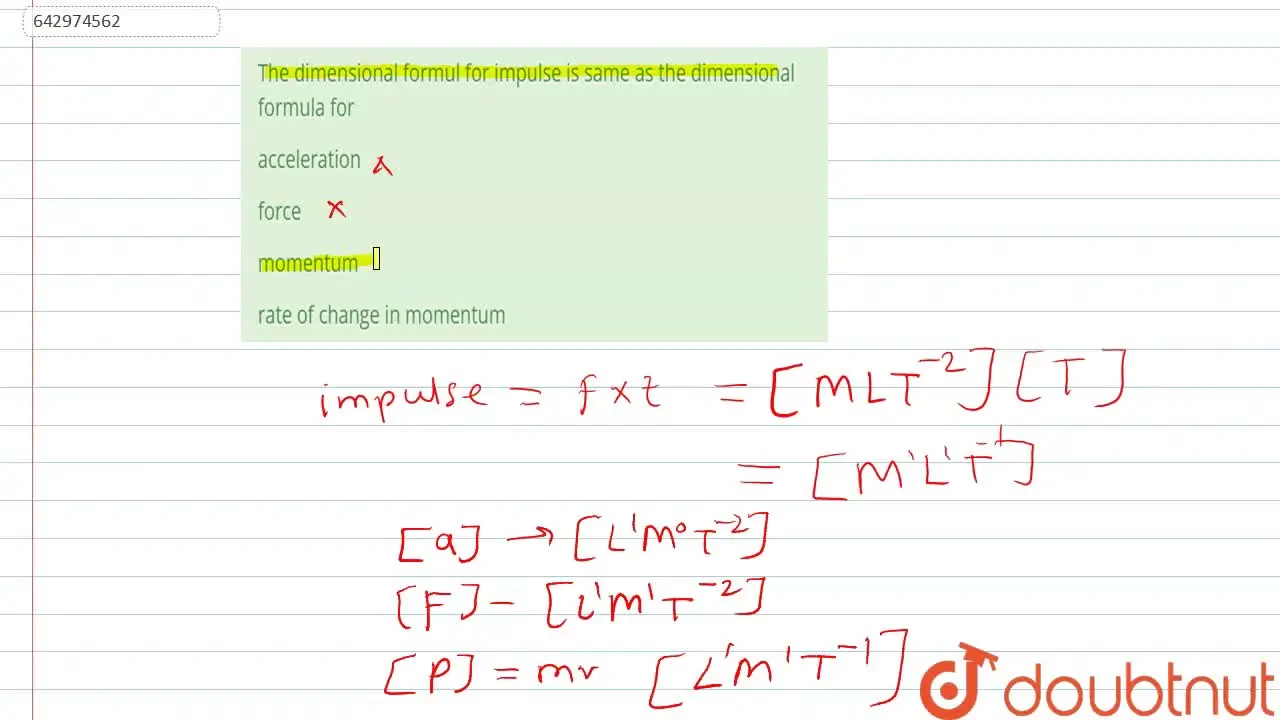 642974562
The dimensional formul for impulse is same as the dimensional
formula for
acceleration x
force x
momentum
rate of change in momentum
impulse = f x t = [MLT⁻²] [T]
= [M¹L¹T⁻¹]
[a] → [L¹M⁰T⁻²]
[F] - [L¹M¹T⁻²]
[P] = mv [L¹M¹T⁻¹]
doubtnut